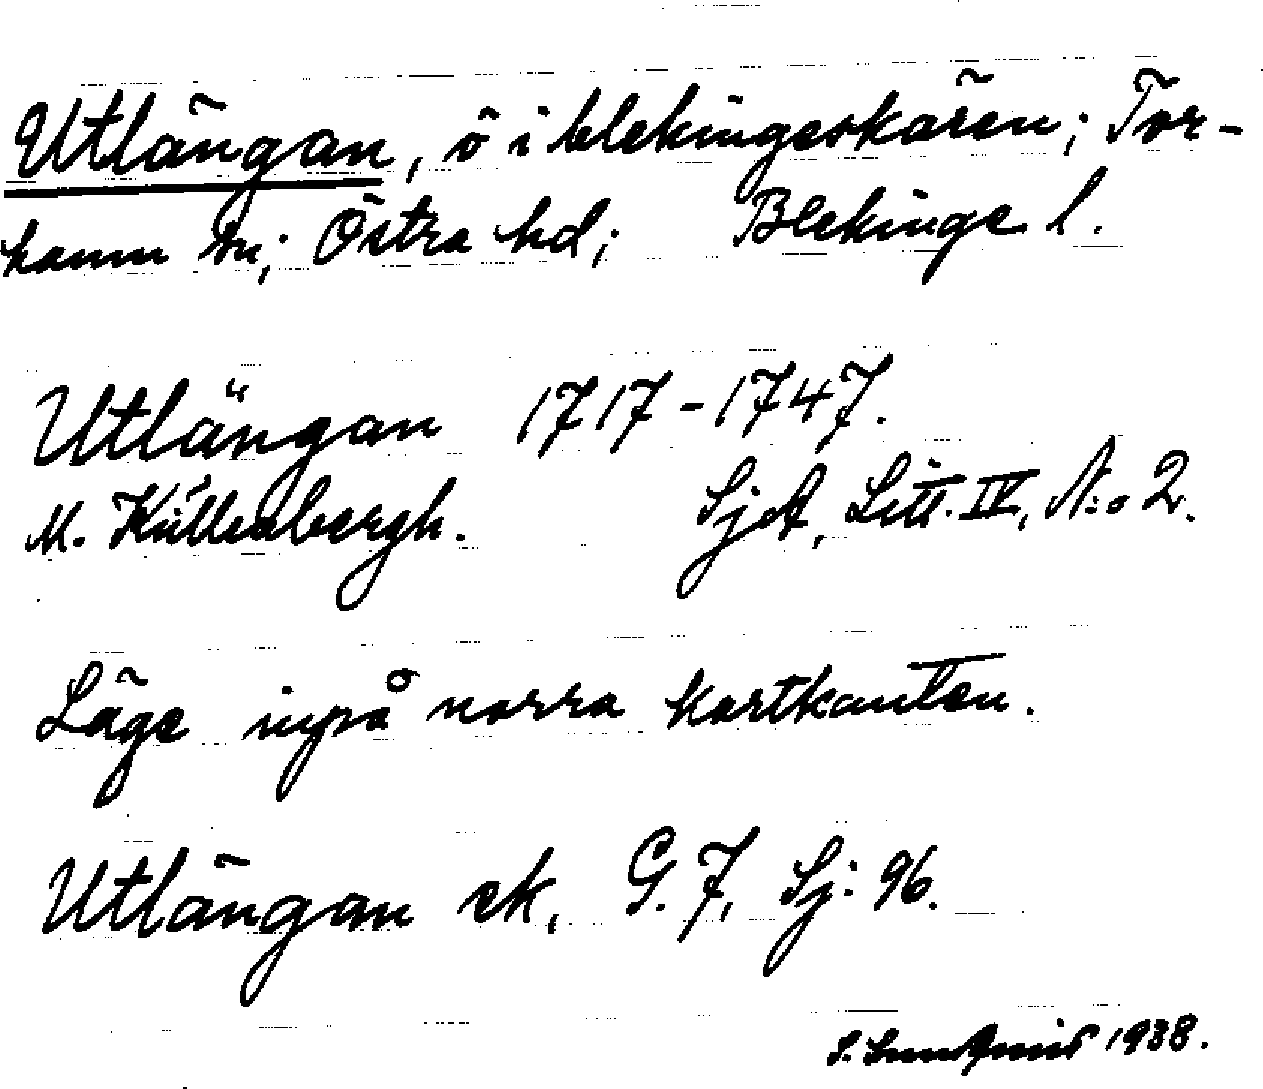 Utlängan, ö i blekingeskären; Tor-
hamn sn; Östra hd; Blekinge l.
Utlängan 1717-1747.
M. Küllenbergh. SjA, Litt. IV, N:o 2.
Läge inpå norra kortkanten.
Utlängan ek, G.7, Sj: 96.
1938.